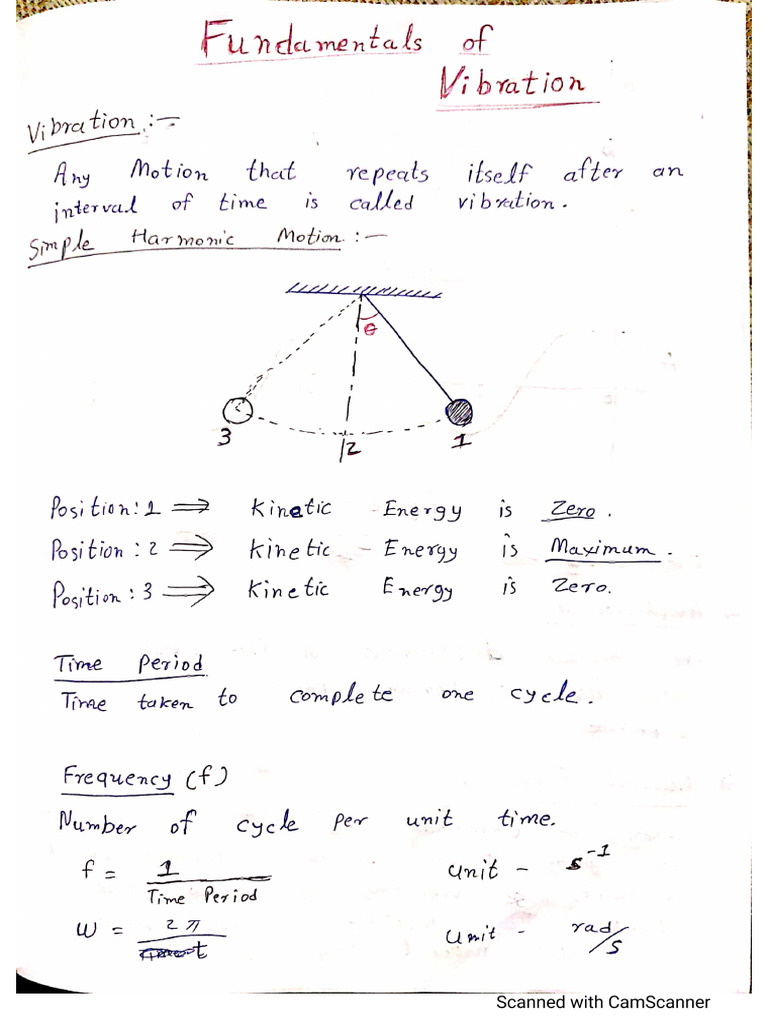 Fundamentals of
Vibration
Vibration :-
Any Motion that repeats itself after an
interval of time is called vibration.
Simple Harmonic Motion :-
θ
3
2
1
Position: 1 ⇒ Kinetic Energy is Zero.
Position : 2 ⇒ Kinetic - Energy is Maximum.
Position : 3 ⇒ Kinetic Energy is Zero.
Time Period
Time taken to complete one cycle.
Frequency (f)
Number of cycle per unit time.
f = 1 / Time Period unit - s⁻¹
ω = 2π / t Unit - rad/s
Scanned with CamScanner